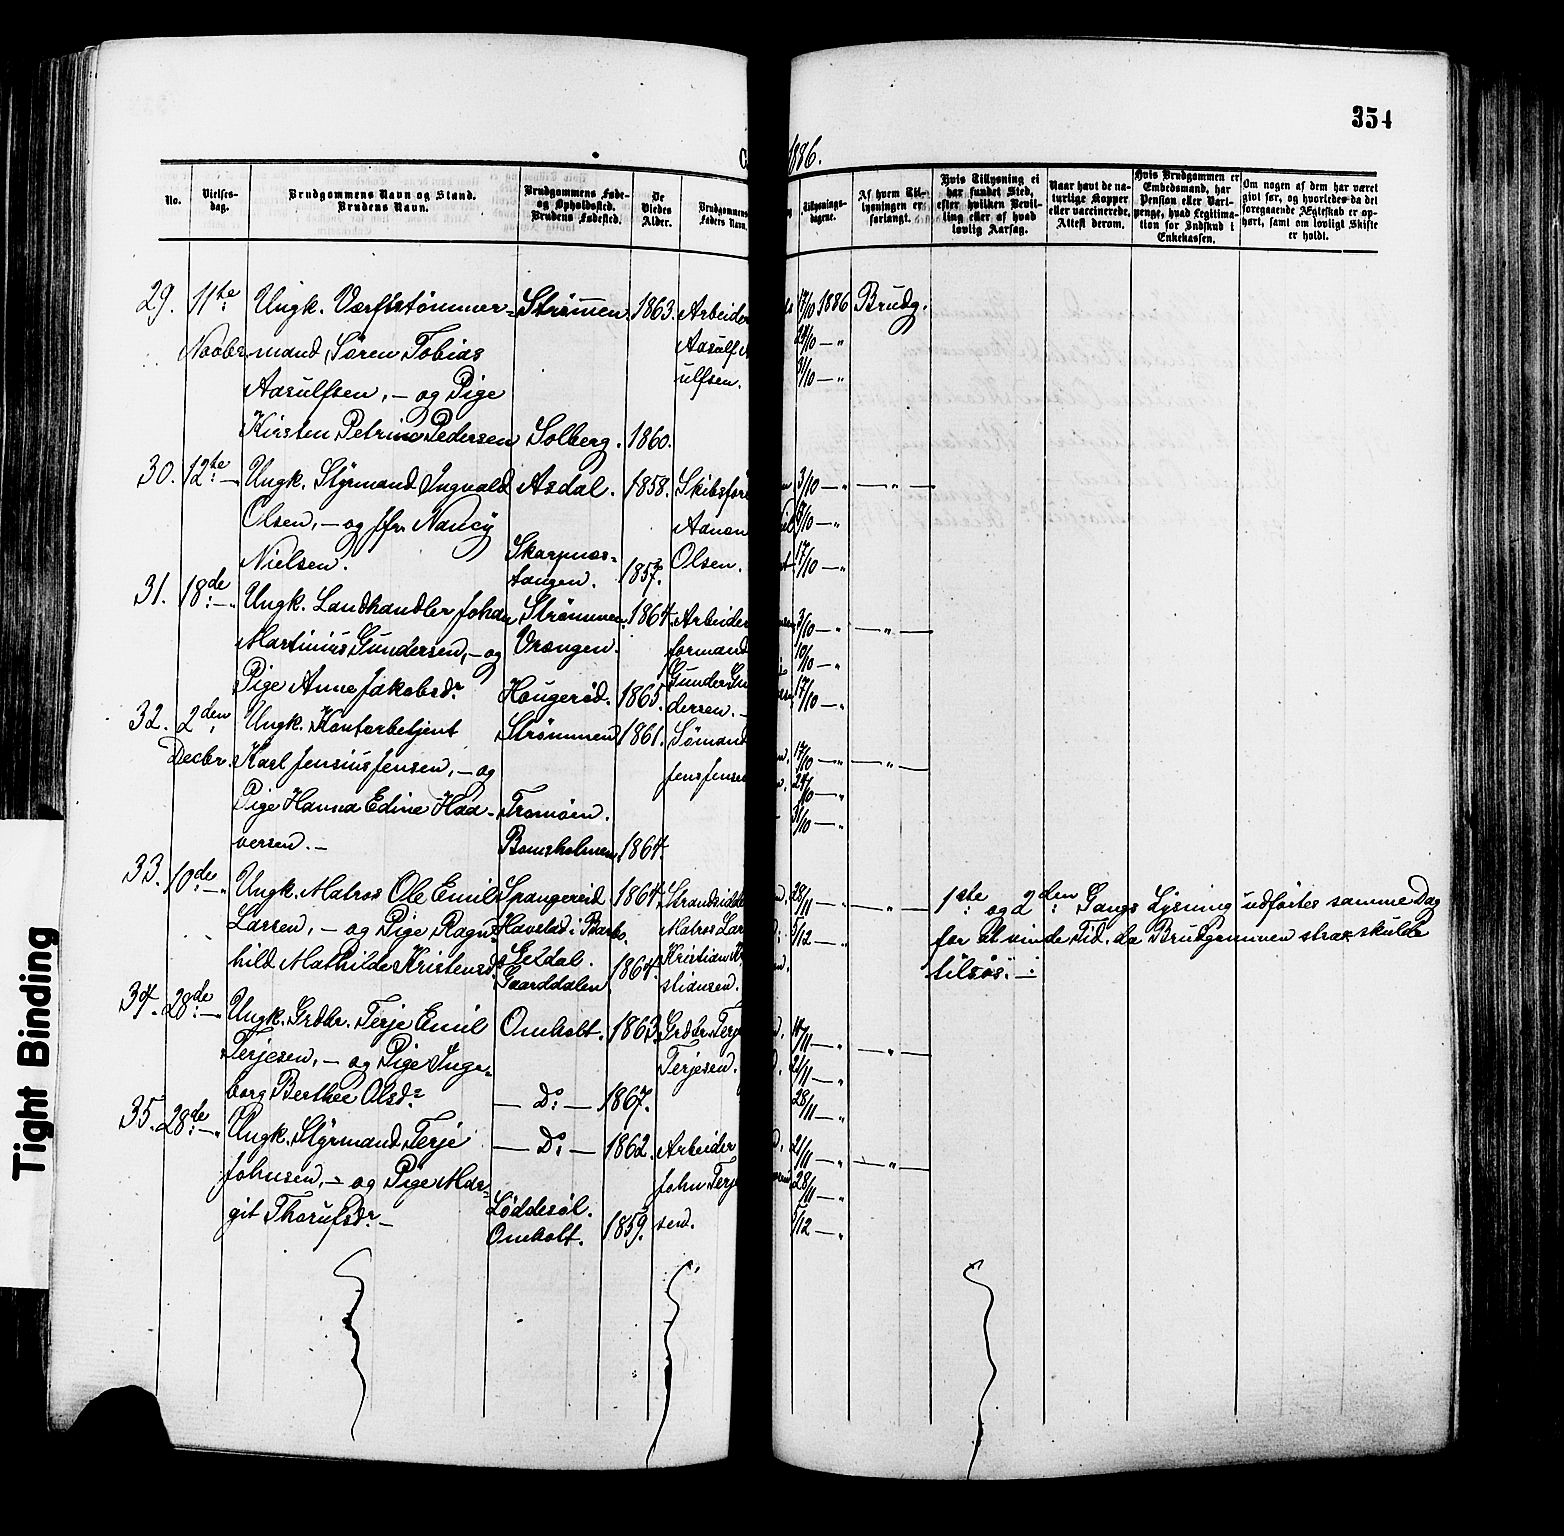 354
1886.
No.
Vielses-
dag.
Brudgommens Navn og Stand.
Brudens Navn.
Brudgommens Føde-
og Opholdssted.
Brudens Fødested.
De
Viedes
Alder.
Brudgommens
Faders Navn.
Tillysnings-
dagene.
Af hvem Til-
lysningen er
forlangt.
Hvis Tillysning ei
har fundet Sted,
efter hvilken Bevil-
ling eller af hvad
lovlig Aarsag.
Naar havt de na-
turlige Kopper
eller vaccinerede.
Attest derom.
Hvis Brudgommen er
Embedsmand, har
Pension eller Vart-
penge, hvad Legitima-
tion for Indskud i
Enkekassen.
Om nogen af dem har været
givt før, og hvorledes da det
foregaaende Ægteskab er op-
hørt, samt om lovligt Skifte
er holdt.
29. 11te Ungk. Værftstømmer= Strømmen. 1863. Arbeider 17/10 1886 Brudg.
Novbr. mand Søren Tobias Aasulf 24/10 — "
Aasulfsen, — og Pige ulfsen. 31/10 — "
Kirsten Petrine Pedersen Solberg. 1860.
30. 12te — Ungk. Styrmand Ingvald Asdal. 1858. Skibsfør 3/10 — " — " —
Olsen, — og Jfr. Nancy Aanon — "
Nielsen. Skarpnes-
tangen. 1857. Olsen. 17/10 — "
31. 18de — " Ungk. Landhandler Johan Strømmen. 1864. Arbeider 3/10 — " — " —
Martinius Gundersen, — og Vrængen. formand 10/10 — "
Pige Anne Jakobsdr Haugerød. 1865. Gunder Gun
dersen. — 17/10 — "
32. 2den Ungk. Kontorbetjent Strømmen 1861. Sømand
Decbr. Karl Jensius Jensen, — og Jens Jensen 17/10 — " — " —
24/10 — "
Pige Hanna Edine Haa- Tromøen. 31/10 — "
versen. — Bomsholmen 1864.
33. 10de — " Ungk. Matros Ole Emil Spangereid 1864. Strandsidde 28/11 — " — " — 1ste og 2den Gangs Lysning udførtes samme Dag
Larsen, — og Pige Ragn= Havstad i Barbo. Matros Lar 5/12 — " for at vinde Tid, da Brudgommen strax skulde
hild Mathilde Kristensd. Gaarddalen. 1864. Kristian Kri
stiansen. tilsøs. —
34. 28de — " Ungk. Grdbr. Terje Emil Omholt. 1863. Grdbr. Terje 14/11 — " — " —
Terjesen, — og Pige Inge= Terjesen. 21/11 — "
borg Berthee Olsdr — Do — 1867. 28/11 — "
35. 28de — " Ungk. Styrmand Terje — Do — 1862. Arbeider 21/11 — " — " —
Johnsen, — og Pige Mar= John Terje 28/11 — "
git Thorufsdr — Løddesøl.
Omholt. 1859. sen. 5/12 — "
Tight Binding